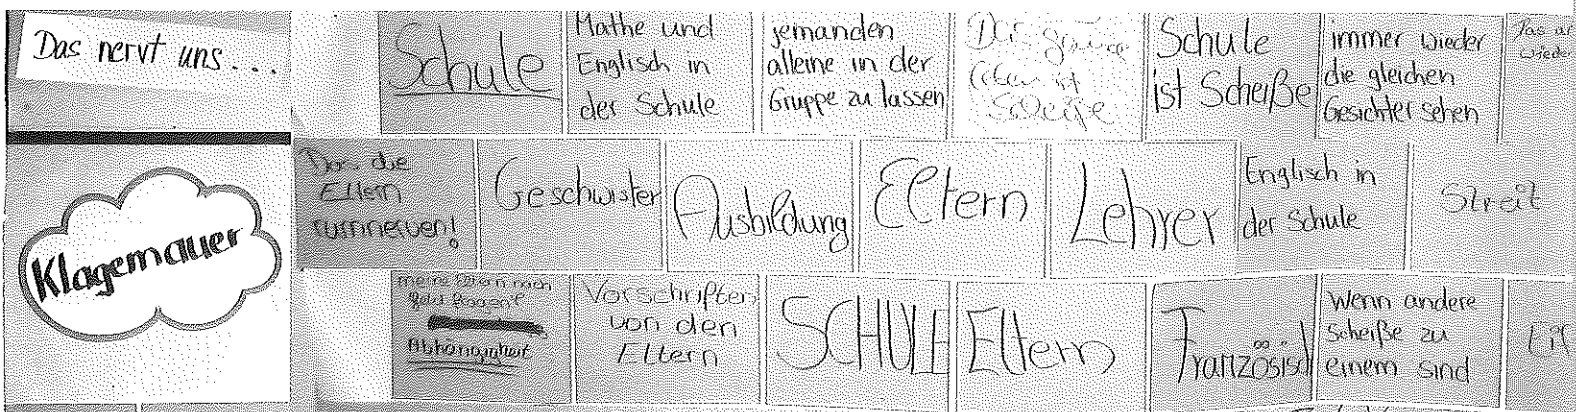 Das nervt uns...
Klagemauer
Schule
Mathe und
Englisch in
der Schule
jemanden
alleine in der
Gruppe zu lassen
Das ganze
Leben ist
Scheiße
Schule
ist Scheiße
immer wieder
die gleichen
Gesichter sehen
wieder
Das die
Eltern
rumnerven!
Geschwister
Ausbildung
Eltern
Lehrer
Englisch in
der Schule
Streit
meine Eltern nach
Geld fragen
Abhängigkeit
Vorschriften
von den
Eltern
SCHULE
Eltern
Französisch
Wenn andere
scheiße zu
einem sind